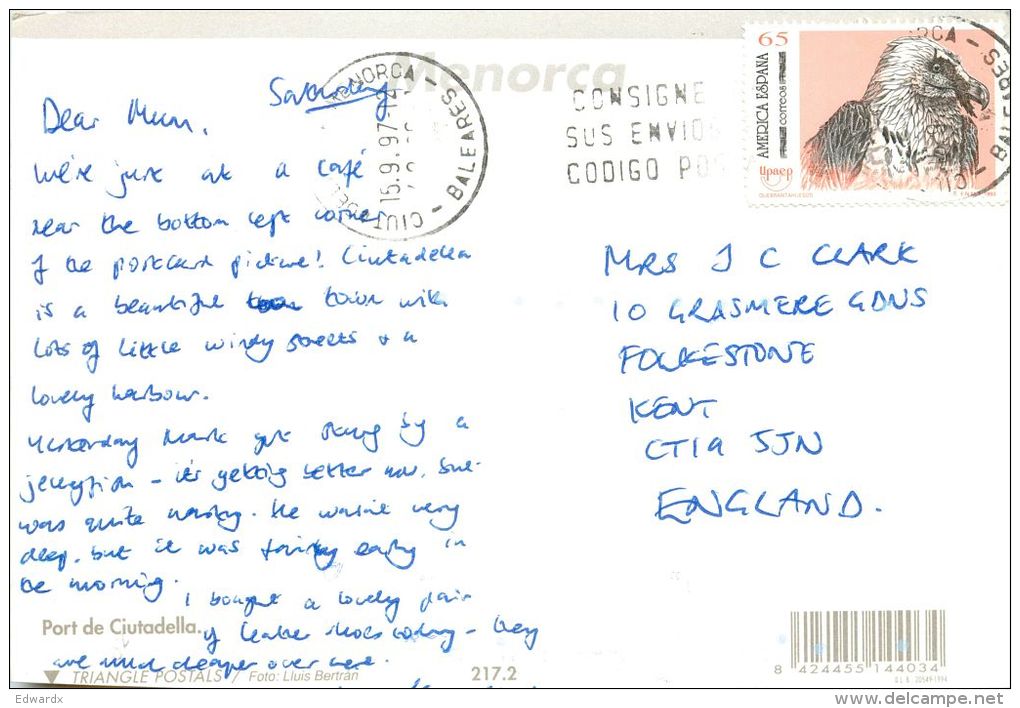 Menorca
Saturday
Dear Mum,
We're just at a café
near the bottom left corner
of the postcard picture! Ciutadella
is a beautiful town with
lots of little windy streets + a
lovely harbour.
Yesterday Mark got stung by a
jellyfish – it's getting better now, but
was quite nasty. He wasn't very
deep, but it was fairly early in
the morning.
I bought a lovely pair
of leather shoes today – they
are much cheaper over here.
Port de Ciutadella.
TRIANGLE POSTALS / Foto: Lluís Bertran
217.2
MENORCA - BALEARES
15.9.97
CIUT
CONSIGNE
SUS ENVIOS
CODIGO POS
65
AMERICA ESPAÑA
correos
Upaep
QUEBRANTAHUESOS
ORCA - BALEARES
CIU
MRS J C CLARK
10 GRASMERE GDNS
FOLKESTONE
KENT
CT19 5JN
ENGLAND.
8 424455 144034
D.L. B. 20549-1994
Edwardx